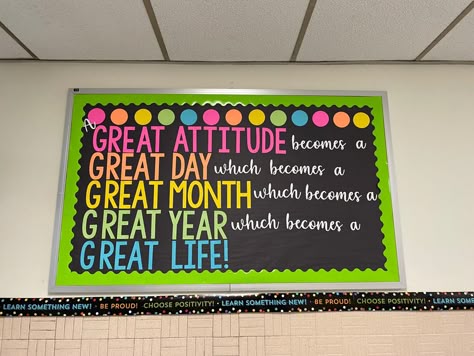 A
GREAT ATTITUDE becomes a
GREAT DAY which becomes a
GREAT MONTH which becomes a
GREAT YEAR which becomes a
GREAT LIFE!
LEARN SOMETHING NEW! • BE PROUD! • CHOOSE POSITIVITY! • LEARN SOMETHING NEW! • BE PROUD! • CHOOSE POSITIVITY! • LEARN SOMETHING NEW!